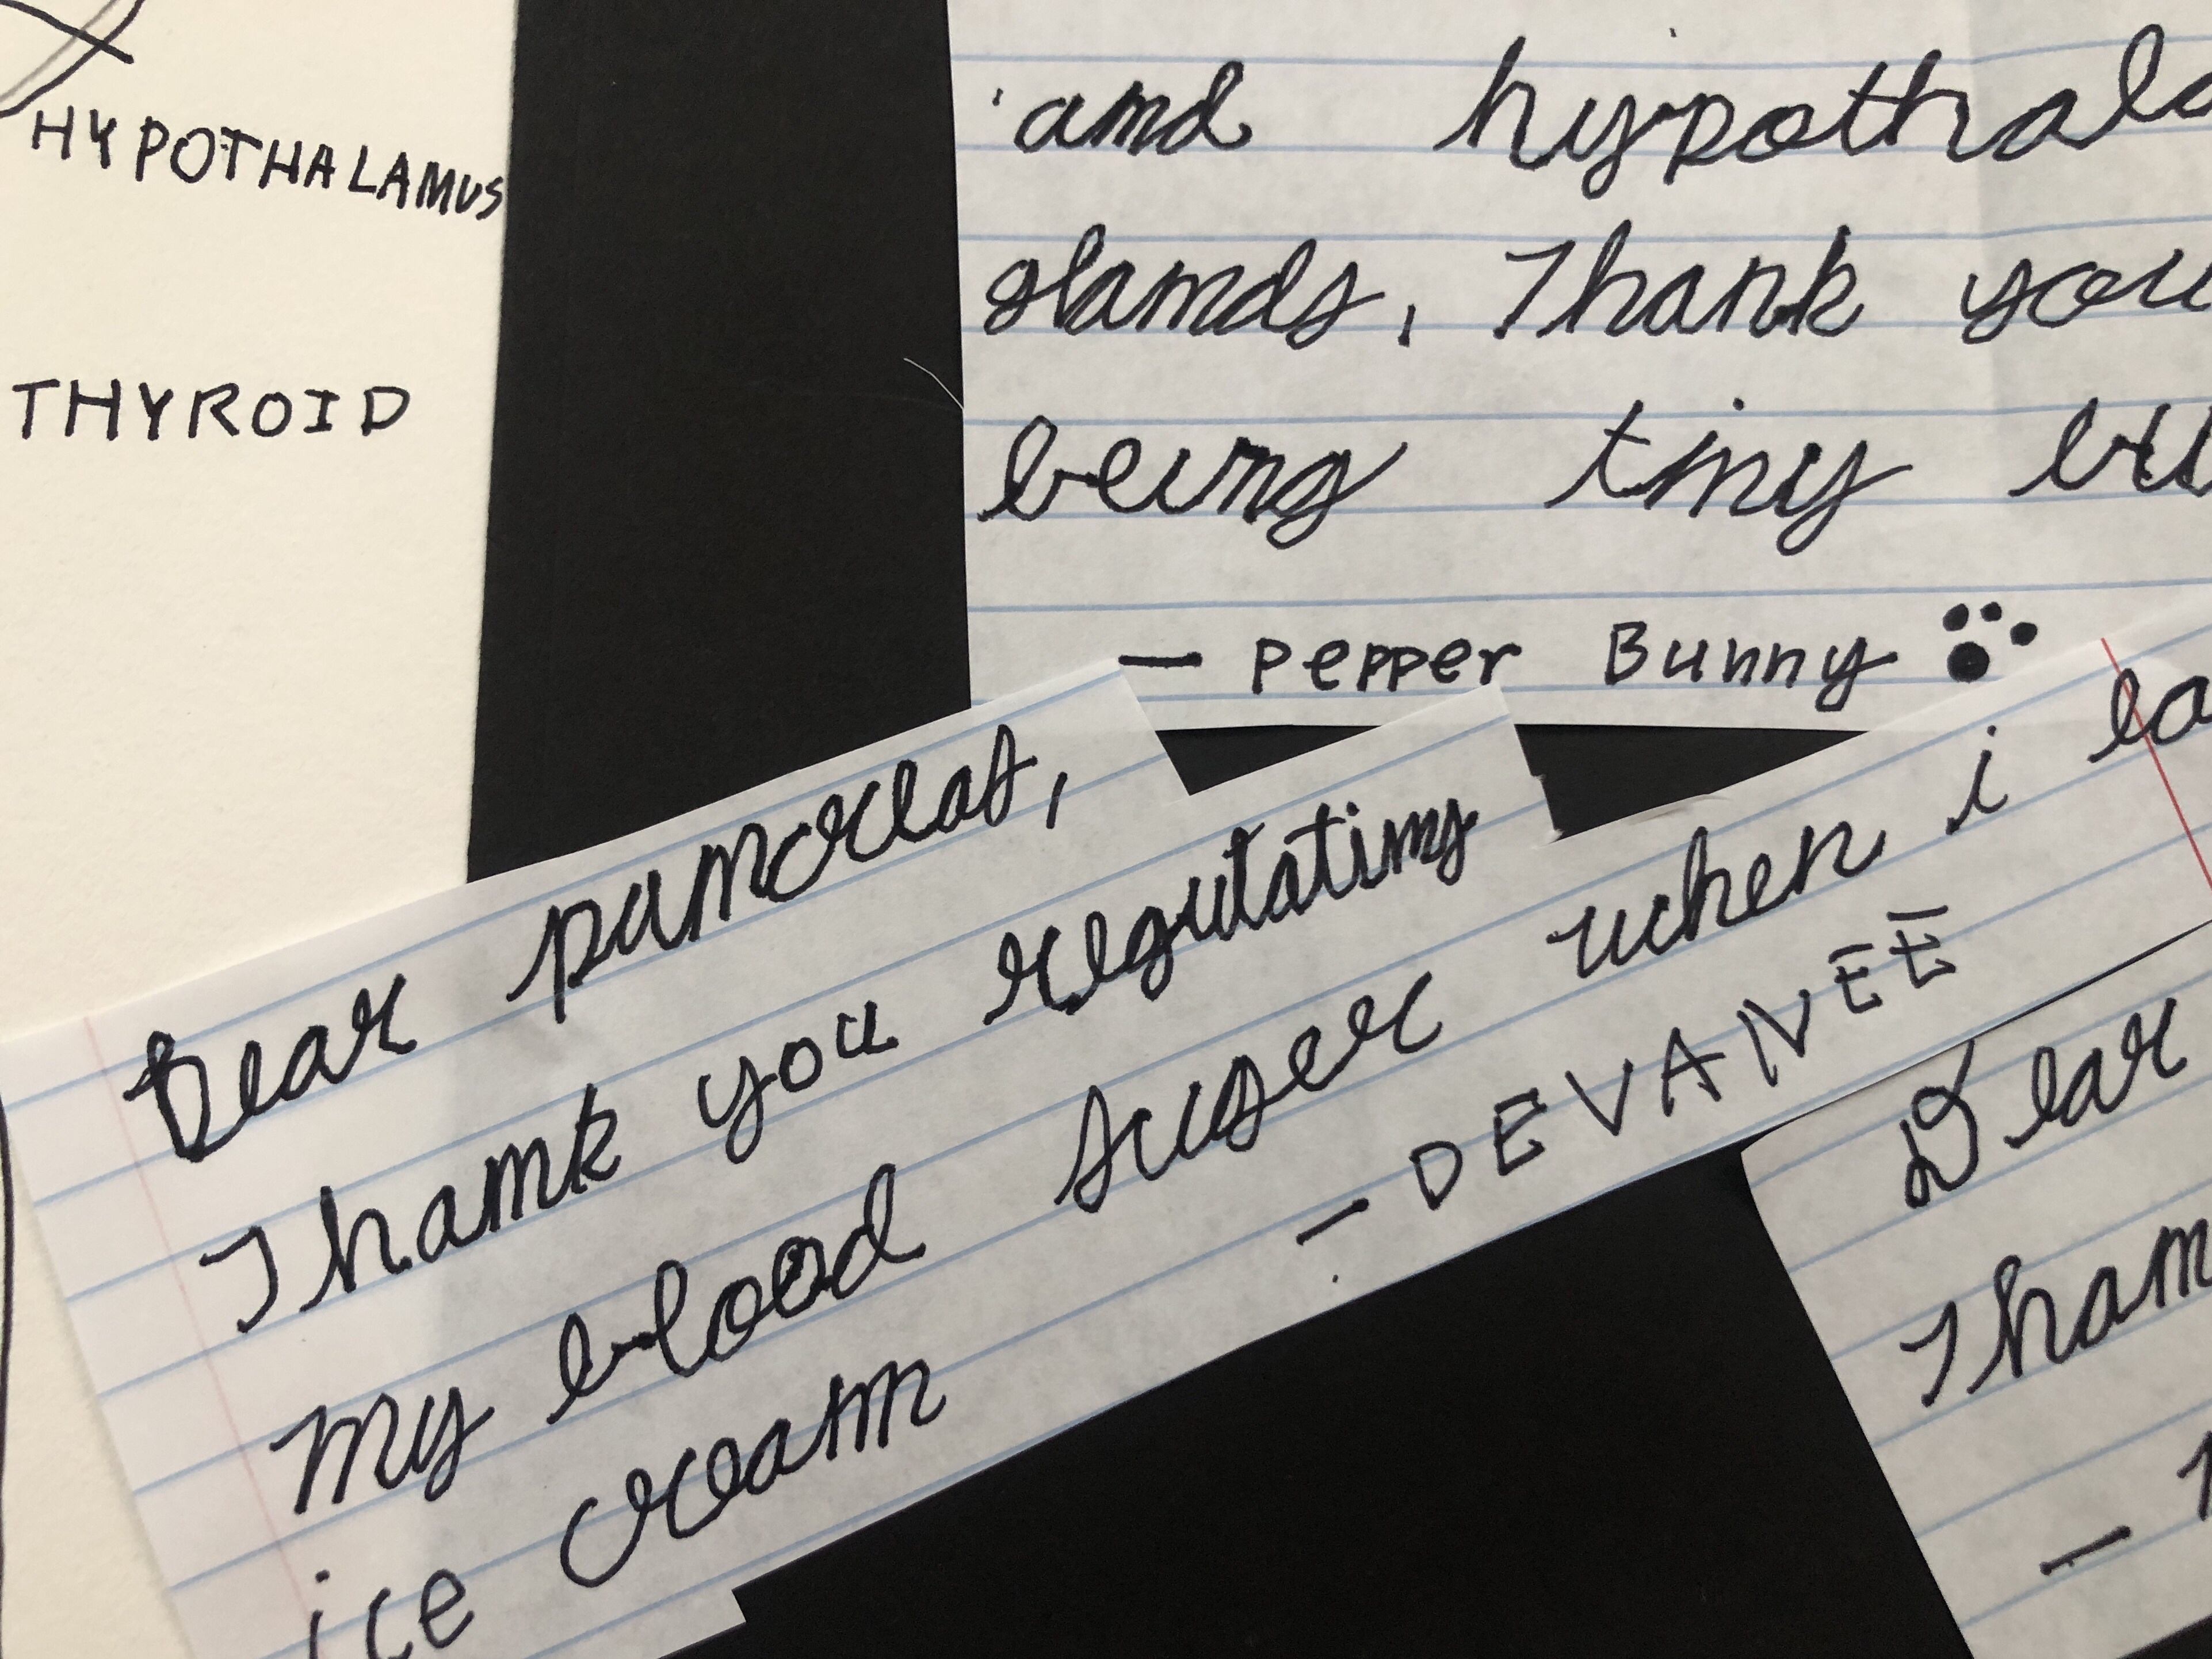 HYPOTHALAMUS
THYROID
and hypothala
glands, Thank you
being tiny
— Pepper Bunny
Dear pancreas,
Thank you regulating
my blood suger when i ea
ice cream
— DEVANEE
Dear
Than
—